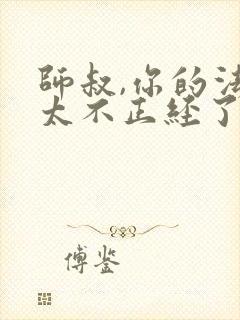 师叔,你的法
太不正经了
傅鉴